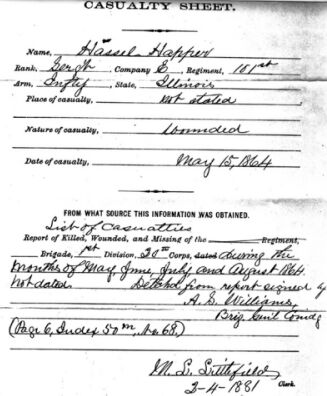 CASUALTY SHEET.
Name, Hassel Hopper
Rank, Serg't, Company E, Regiment, 101st
Arm, Infty, State, Illinois
Place of casualty, Not stated
Nature of casualty, Wounded
Date of casualty, May 15, 1864
FROM WHAT SOURCE THIS INFORMATION WAS OBTAINED.
List of Casualties
Report of Killed, Wounded, and Missing of the Regiment,
Brigade, 1st Division, 20th Corps, dated during the
months of May, June, July and August 1864.
Not dated. from report signed by
A. S. Williams,
Brig. Genl Comdg
(Page 6, Index 50 No 68.)
M. L. Littlefield
2-4-1881 Clerk.